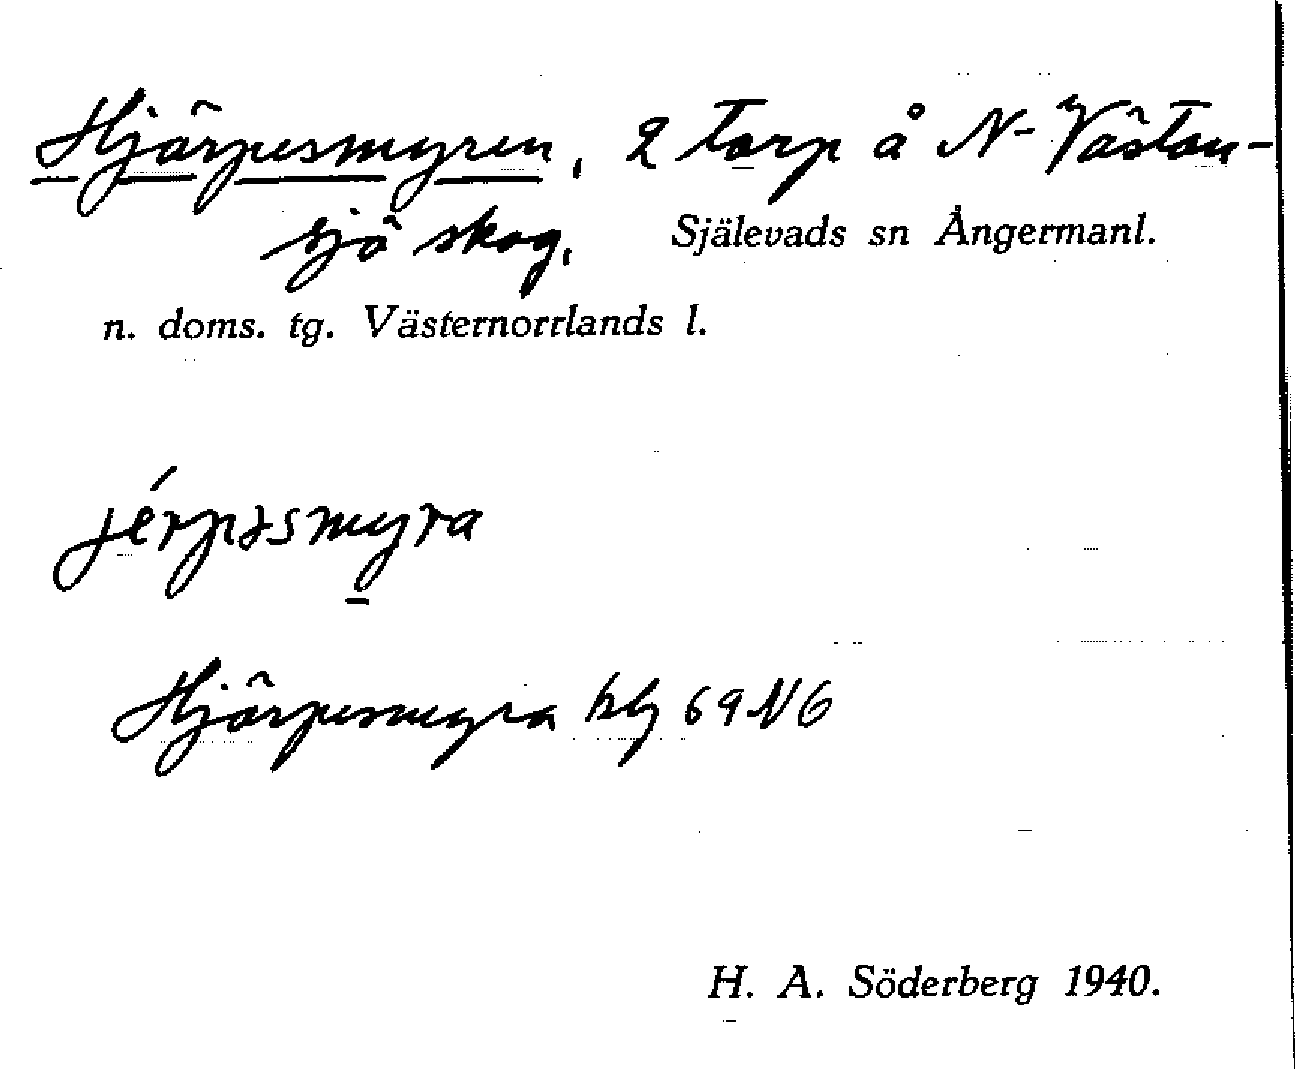 Hjärpesmyren, 2 torp å N. Västan-
sjö skog, Själevads sn Ångermanl.
n. doms. tg. Västernorrlands l.
jérpəsmyra
Hjärpesmyra bl 69 NG
H. A. Söderberg 1940.